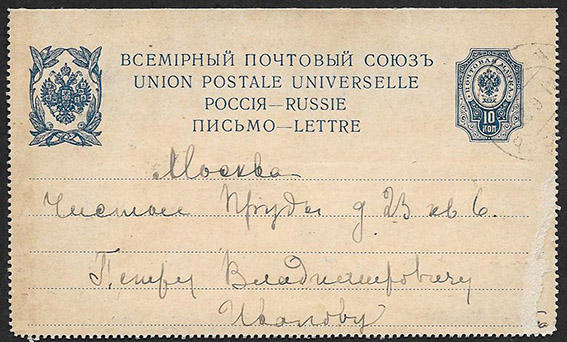 ВСЕМІРНЫЙ ПОЧТОВЫЙ СОЮЗЪ
UNION POSTALE UNIVERSELLE
РОССІЯ—RUSSIE
ПИСЬМО—LETTRE
ПОЧТОВАЯ МАРКА
10
КОП
Москва
Чистые Пруды д. 23 кв 6.
Петру Владимировичу
Иванову